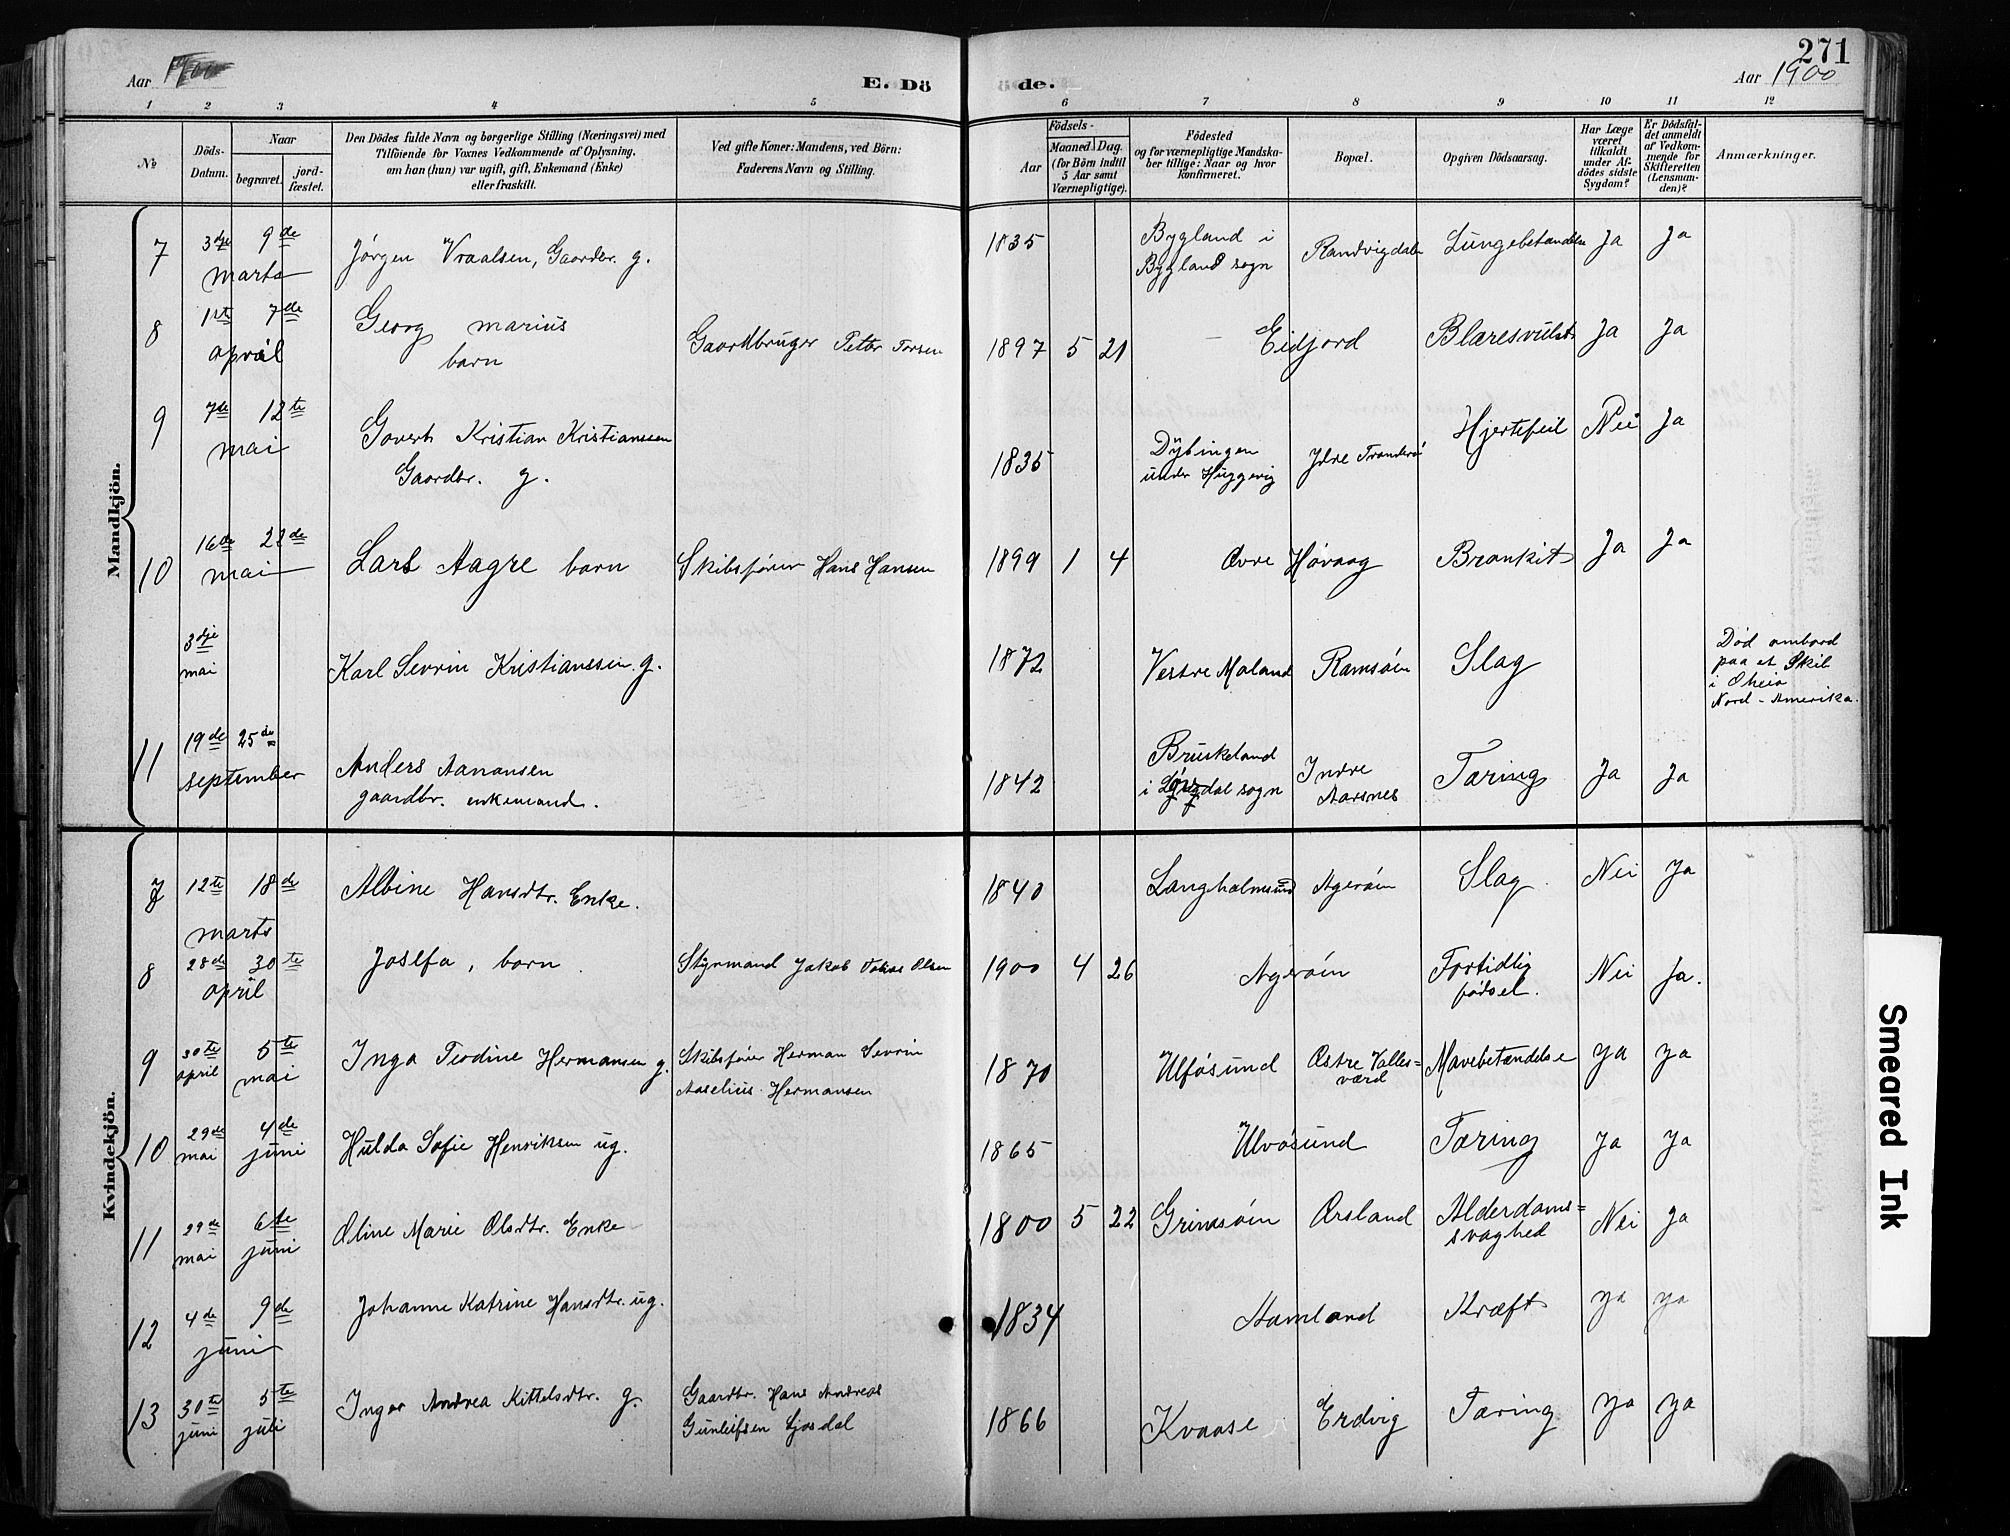 271
Aar 1900 E. Dö de. Aar 1900
1 2 3 4 5 6 7 8 9 10 11 12
No
Döds-Datum.
Naar
begravet.
jord-fæstet.
Den Dödes fulde Navn og borgerlige Stilling (Næringsvei) med
Tilföiende for Voxnes Vedkommende af Oplysning,
om han (hun) var ugift, gift, Enkemand (Enke)
eller fraskilt.
Ved gifte Koner: Mandens, ved Börn:
Faderens Navn og Stilling.
Födsels-
Aar
Maaned. Dag.
(for Börn indtil
5 Aar samt
Værnepligtige).
Födested
og for værnepligtige Mandska-
ber tillige: Naar og hvor
konfirmeret.
Bopæl.
Opgiven Dödsaarsag.
Har Læge
været
tilkaldt
under Af-
dödes sidste
Sygdom?
Er Dödsfal-
det anmeldt
af Vedkom-
mende for
Skifteretten
(Lensman-
den)?
Anmærkninger.
Mandkjön.
7 3dje 9de marts Jørgen Vraalsen, Gaardbr. g. 1835 Bygland i Bygland sogn Randvigdalen Lungebetændelse Ja Ja
8 1ste 7de april Georg Marius barn Gaardbruger Peter Torsen 1897 5 21 – Eidjord Blæresvulst Ja Ja
9 7de 12te mai Govert Kristian Kristianssen Gaardbr. g. 1835 Dybingen under Huggevig Ydre Tronderø Hjertefeil Nei Ja
10 16de 22de mai Lars Aagre barn Skibsfører Hans Hansen 1899 1 4 Øvre Høvaag Bronkit Ja Ja
3dje mai Karl Sevrin Kristianssen g. 1872 Vestre Moland Ramsøen Slag
Død ombord
paa et Skib
i Oheio
Nord-Amerika.
11 19de 25de september Anders Aanansen gaardbr. enkemand. 1842 Bruskeland i sogn Indre Aarsnes Tæring Ja Ja
Kvindekjön.
7 12te 18de marts Albine Hansdtr. Enke. 1840 Langholmsund Agerøen Slag. Nei Ja
8 28de 30te april Josefa, barn Styrmand Jakob Tobias Olsen 1900 4 26 Agerøen Fortidlig fødsel. Nei Ja.
9 30te april 5te mai Inga Teodine Hermansen g. Skibsfører Herman Sevrin Aaselius Hermansen 1870 Ulføsund Østre Vallesværd Mavebetændelse Ja Ja
10 29de mai 4de juni Hulda Sofie Henriksen ug. 1865 Ulvøsund Tæring Ja Ja
11 29de mai 6te juni Oline Marie Olsdtr. Enke 1800 5 22 Grimsøen Ørsland Alderdoms= svaghed Nei Ja
12 4de 9de juni Johanne Katrine Hansdtr. ug. 1834 Hamland Kræft Ja Ja
13 30te juni 5te juli Inger Andrea Kittelsdtr. g. Gaardbr. Hans Andreas Gunleifsen Ljosdal 1866 Kvaase Erdvig Tæring Ja Ja
Smeared Ink